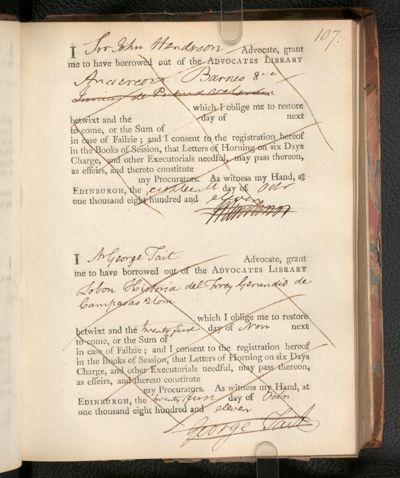 107.
I Sir John Henderson Advocate, grant
me to have borrowed out of the ADVOCATES LIBRARY
Anacreon Barnes 8vo
which I oblige me to restore
betwixt and the day of next
to come, or the Sum of
in case of Failzie; and I consent to the registration hereof
in the Books of Session, that Letters of Horning on six Days
Charge, and other Executorials needful, may pass thereon,
as effeirs, and thereto constitute
my Procurators. As witness my Hand, at
EDINBURGH, the day of Octr
one thousand eight hundred and eleven
I George Tait Advocate, grant
me to have borrowed out of the ADVOCATES LIBRARY
Lobon Historia del Fray Gerundio de
Campazas 2 tom
which I oblige me to restore
betwixt and the twenty first day of Novr next
to come, or the Sum of
in case of Failzie; and I consent to the registration hereof
in the Books of Session, that Letters of Horning on six Days
Charge, and other Executorials needful, may pass thereon,
as effeirs, and thereto constitute
my Procurators. As witness my Hand, at
EDINBURGH, the twenty first day of Octr
one thousand eight hundred and eleven
George Tait